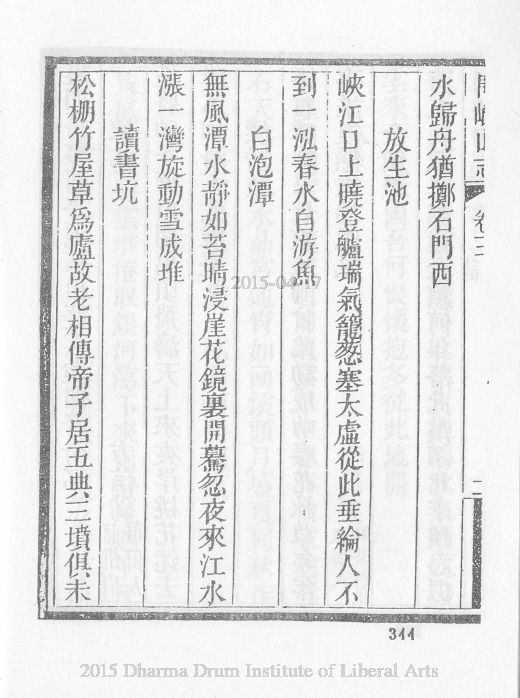 水歸舟猶擲石門西
放生池
峽江口上曉登艫瑞氣籠蔥塞太虛從此垂綸人不
到一泓春水自游魚
白泡潭
無風潭水靜如苔晴浸崖花鏡裏開驀忽夜來江水
漲一灣旋動雪成堆
讀書坑
松棚竹屋草爲廬故老相傳帝子居五典三墳俱未
山志 卷三
二
2015-04-17
344
2015 Dharma Drum Institute of Liberal Arts